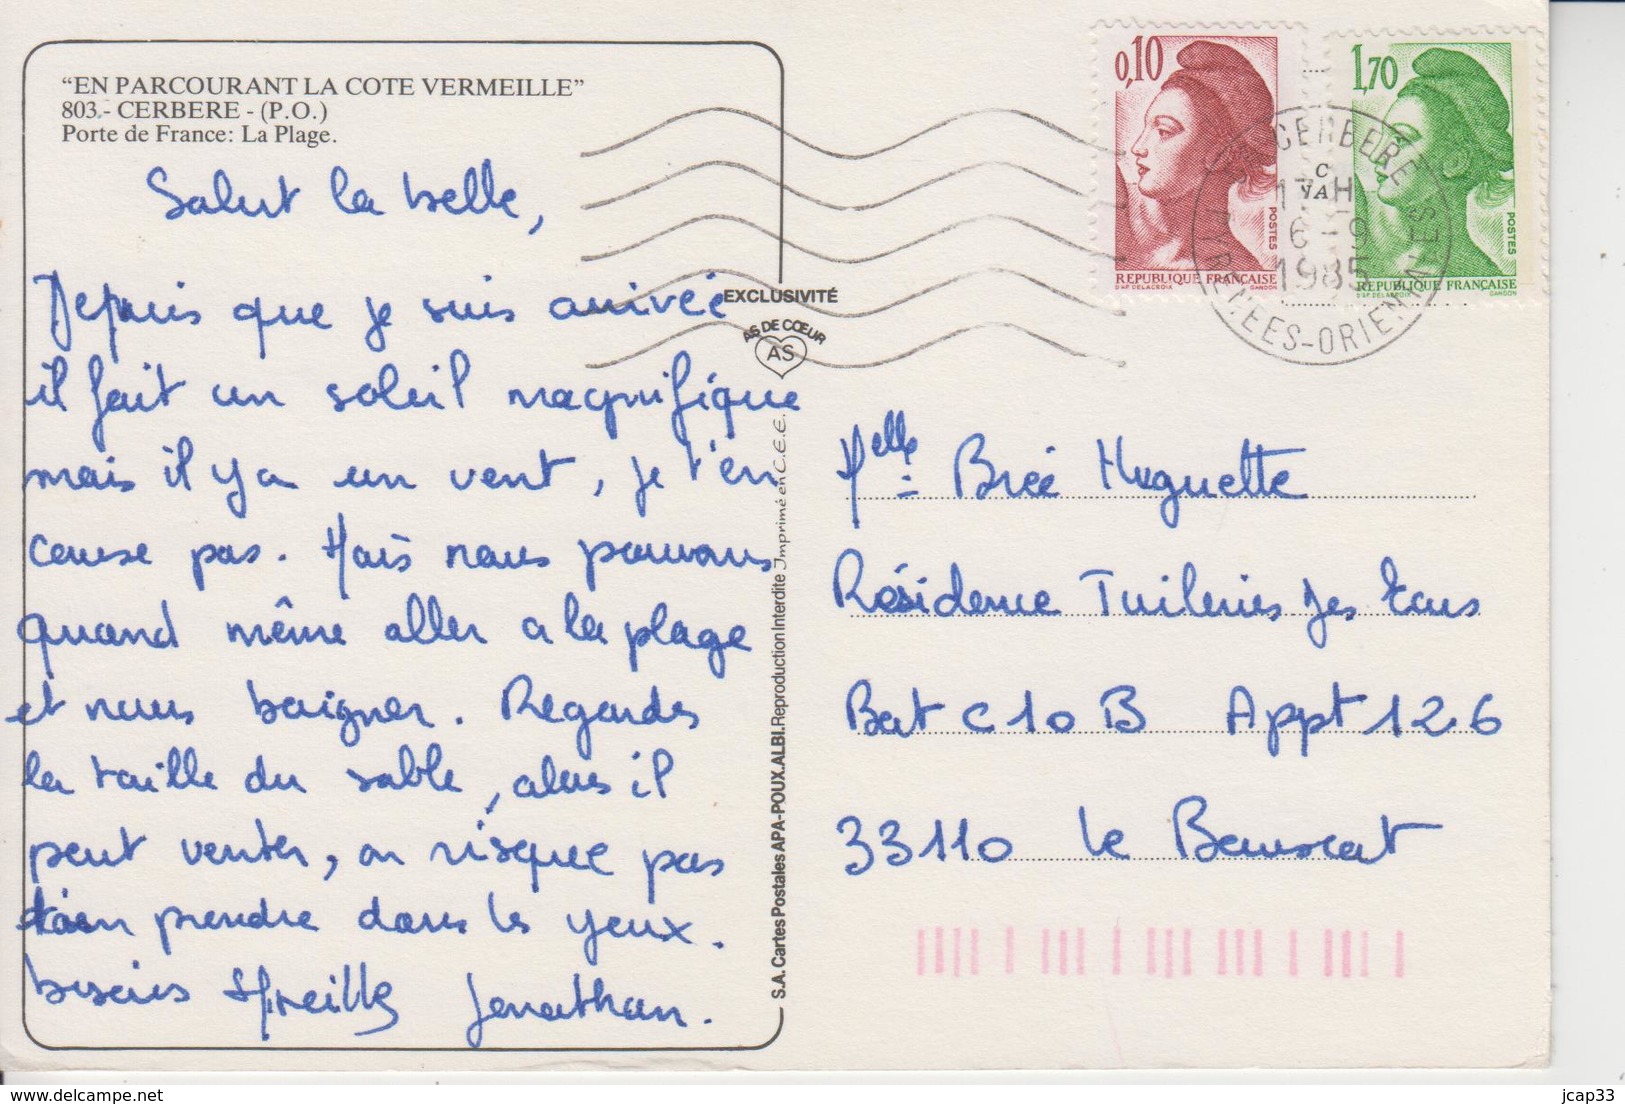 "EN PARCOURANT LA COTE VERMEILLE"
803.- CERBERE - (P.O.)
Porte de France: La Plage.
Salut la belle,
Depuis que je suis arrivée
il fait un soleil magnifique
mais il y a un vent, je t'en
cause pas. Mais nous pouvons
quand même aller a la plage
et nous baigner. Regardes
la taille du sable, alors il
peut venter, on risque pas
d'en prendre dans les yeux.
bisous Mireille Jonathan.
EXCLUSIVITÉ
AS DE CŒUR
AS
S.A. Cartes Postales APA-POUX.ALBI. Reproduction Interdite Imprimé en C.E.E.
0,10
POSTES
REPUBLIQUE FRANÇAISE
D'AP. DELACROIX GANDON
1,70
POSTES
REPUBLIQUE FRANÇAISE
D'AP. DELACROIX GANDON
CERBERE
17 H
6-9
1985
PYRENEES-ORIENTALES
Melle Brée Huguette
Résidence Tuileries Les Ecus
Bat C10 B Appt 126
33110 Le Bouscat
jcap33